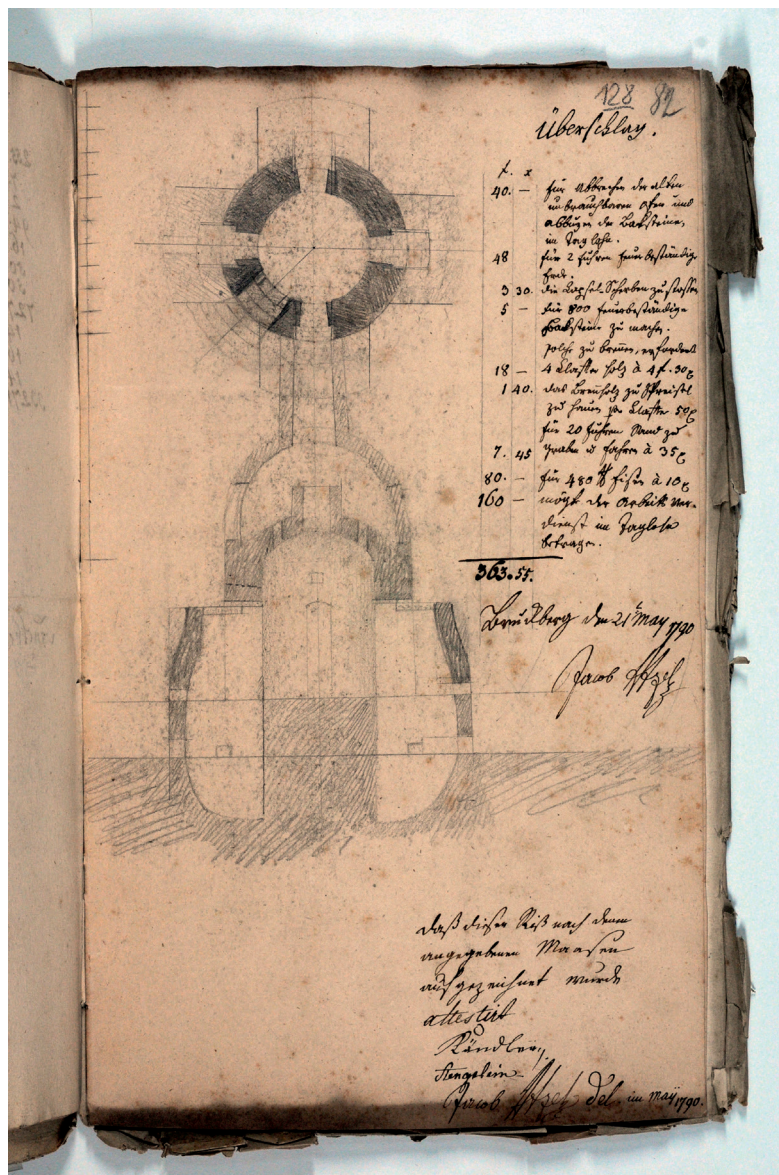 128 82
Überschlag.
f. x
40. — für Abbrechen der alten
unbrauchbaren Ofen und
abbuzen der Backsteine,
im Taglohn.
48 für 2 Fuhren feuerbeständige
Erde.
3 30. die Capsel-Scherben zu stossen
5 — für 800 feuerbeständige
Backsteine zu machen.
solche zu brennen, erfordert
18 — 4 Claffter Holz à 4 f. 30 x
1 40. das Brennholz zu
zu hauen per Claffter 50 x
für 20 Fuhren Sand zu
7. 45 graben u fahren à 35 x
80. — für 480 ℔ Eisen à 10 x
160 — mögt der Arbeits Ver-
dienst im Taglohn
betragen.
363. 55.
Bruckberg den 21 May 1790
Jacob
daß dieser Riß nach denen
angegebenen Maasen
aufgezeichnet wurde
attestirt
Kändler,
Stenglein
Jacob del. im May 1790.